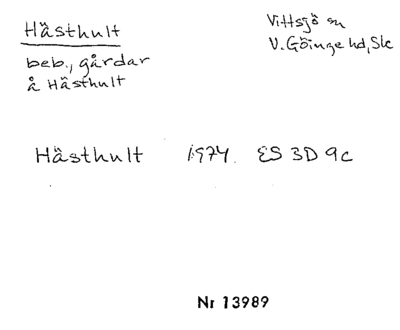 Hästhult
Vittsjö sn
V. Göinge hd, Sk
beb., gårdar
å Hästhult
Hästhult 1974. ES 3D 9c
Nr 13989